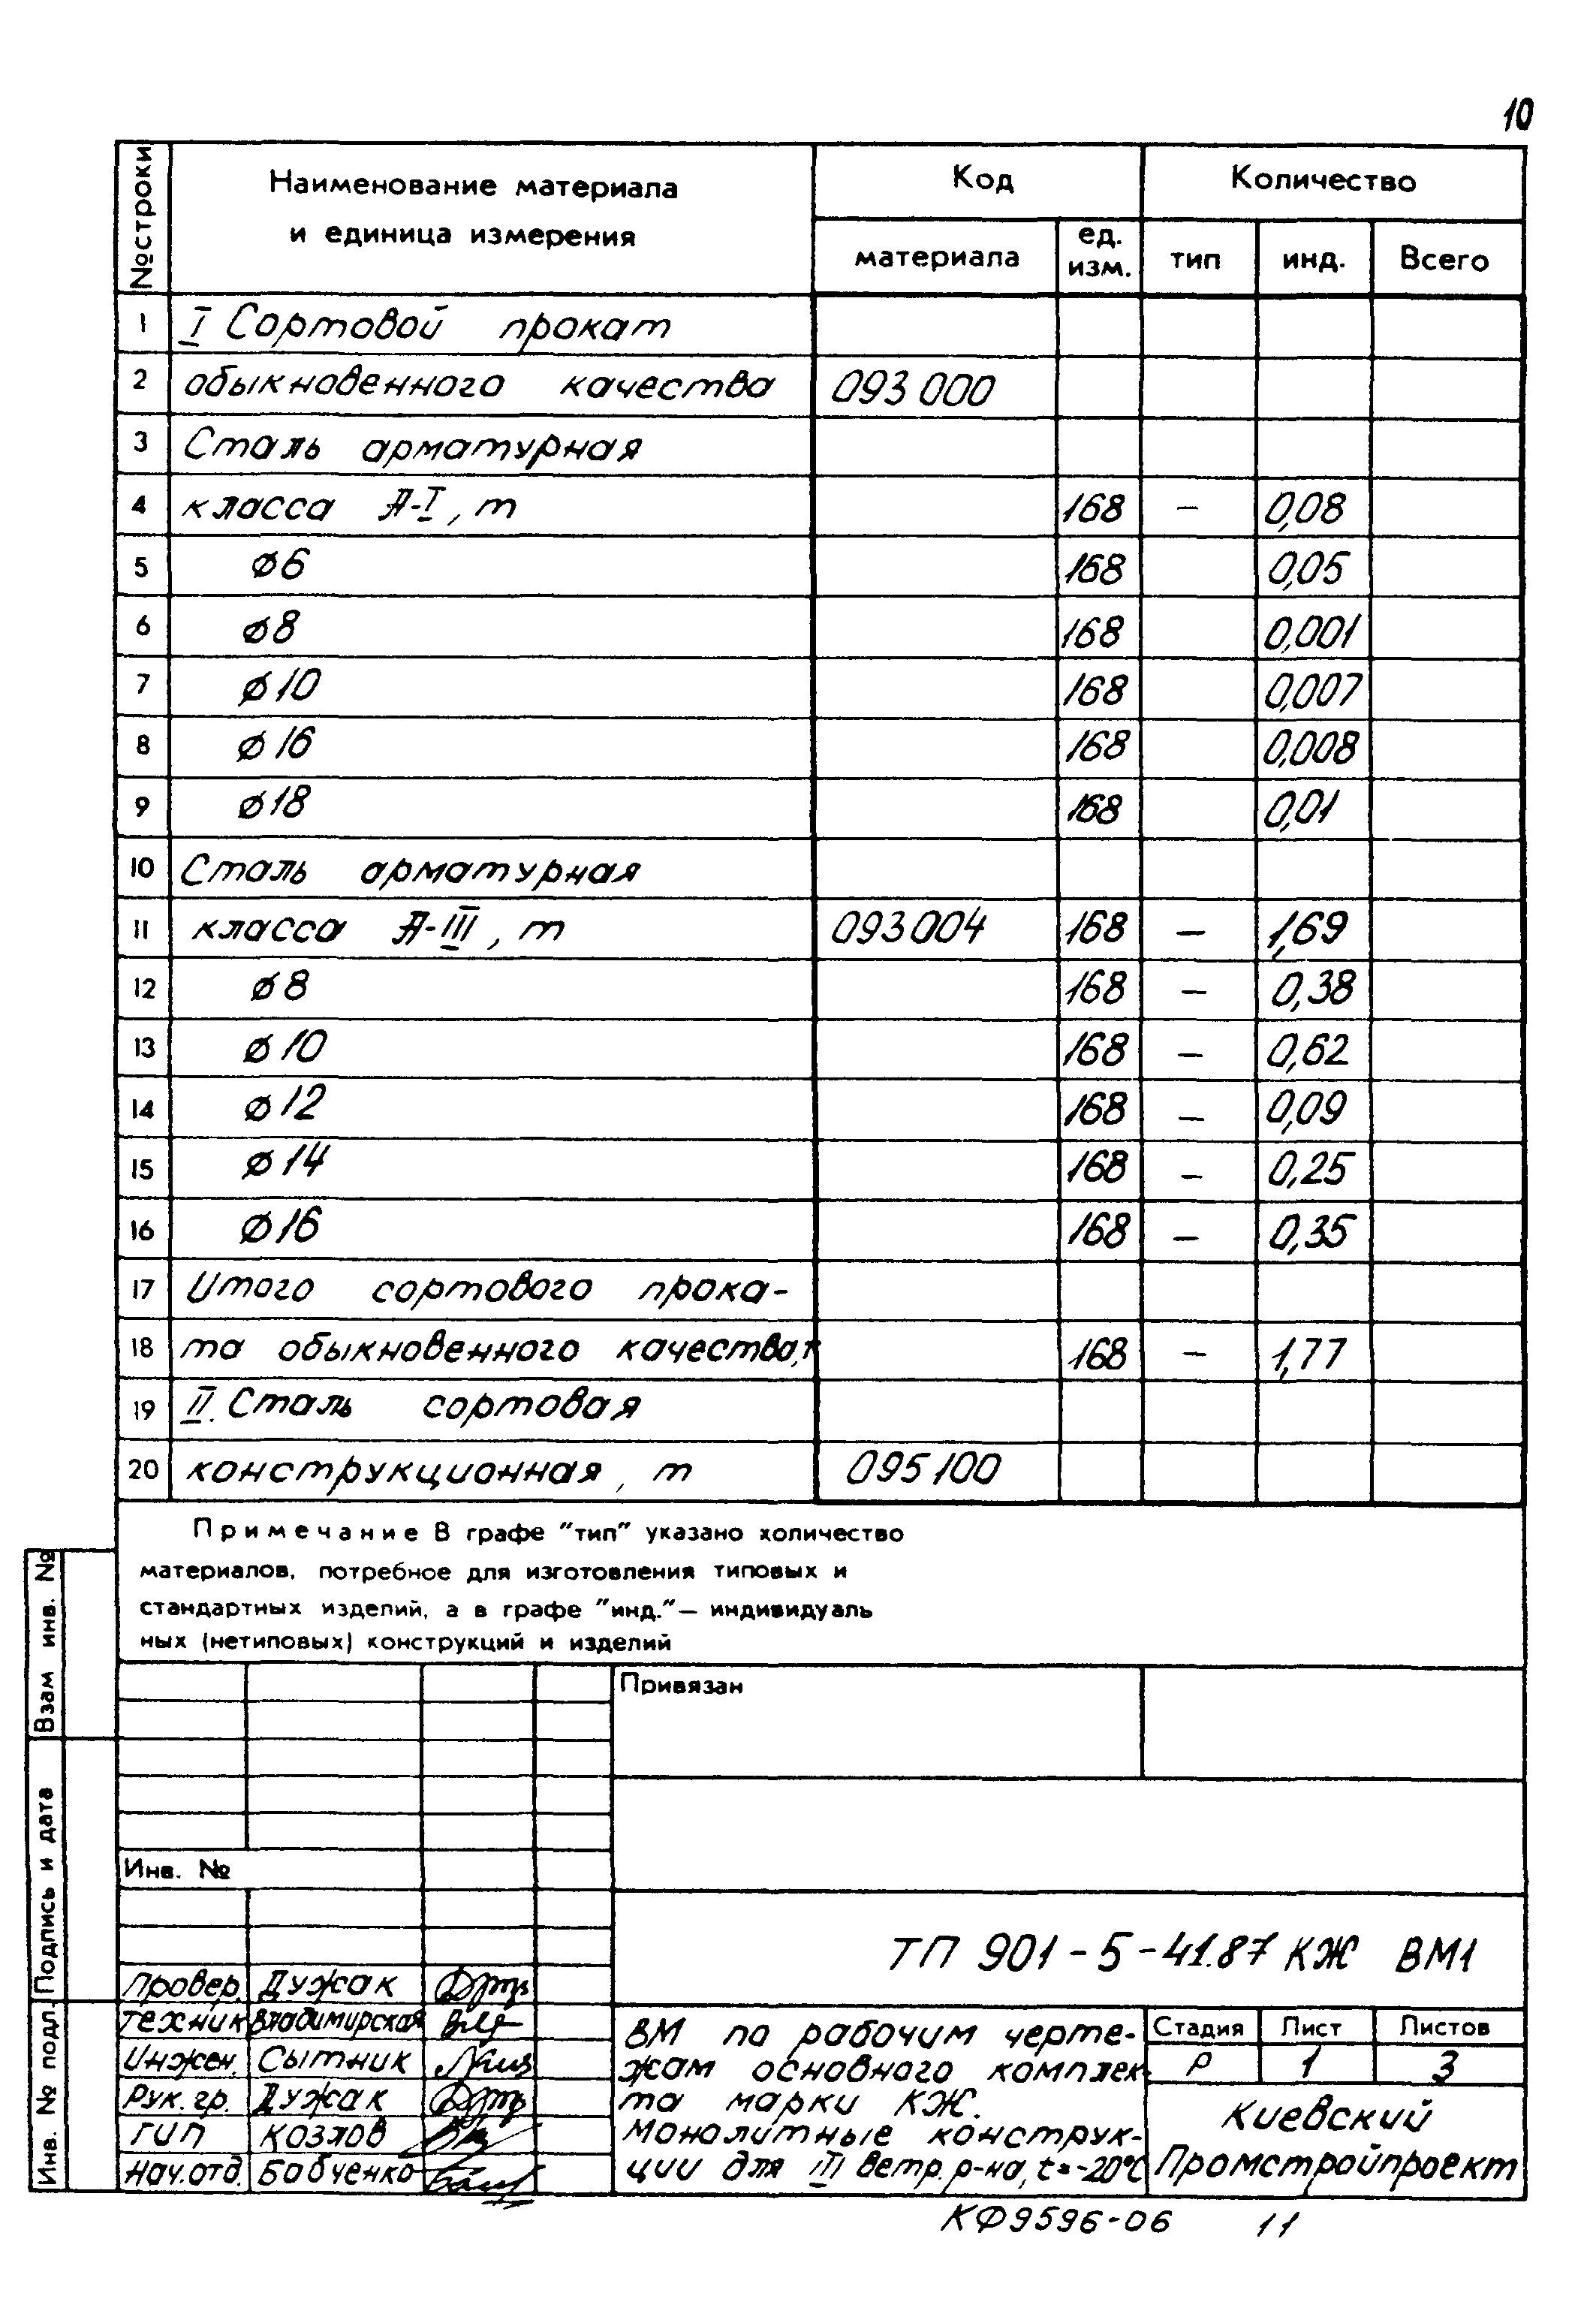 10
№ строки | Наименование материала и единица измерения | Код | Количество
материала | ед. изм. | тип | инд. | Всего
1 I Сортовой прокат
2 обыкновенного качества 093000
3 Сталь арматурная
4 класса А-I, т 168 – 0,08
5 ø6 168 0,05
6 ø8 168 0,001
7 ø10 168 0,007
8 ø16 168 0,008
9 ø18 168 0,01
10 Сталь арматурная
11 класса А-III, т 093004 168 – 1,69
12 ø8 168 – 0,38
13 ø10 168 – 0,62
14 ø12 168 – 0,09
15 ø14 168 – 0,25
16 ø16 168 – 0,35
17 Итого сортового прока-
18 та обыкновенного качества, т 168 – 1,77
19 II. Сталь сортовая
20 конструкционная, т 095100
Примечание В графе "тип" указано количество
материалов, потребное для изготовления типовых и
стандартных изделий, а в графе "инд."— индивидуаль
ных (нетиповых) конструкций и изделий
Взам инв. №
Подпись и дата
Инв. № подл.
Привязан
Инв. №
ТП 901-5-41.87 КЖ ВМ1
Провер. Дужак
Техник Владимирская
Инжен. Сытник
Рук. гр. Дужак
ГИП Козлов
Нач.отд. Бабченко
ВМ по рабочим черте-
жам основного комплек-
та марки КЖ.
Монолитные конструк-
ции для III ветр. р-на, t=-20°С
Стадия Лист Листов
Р 1 3
Киевский
Промстройпроект
КФ9596-06 11